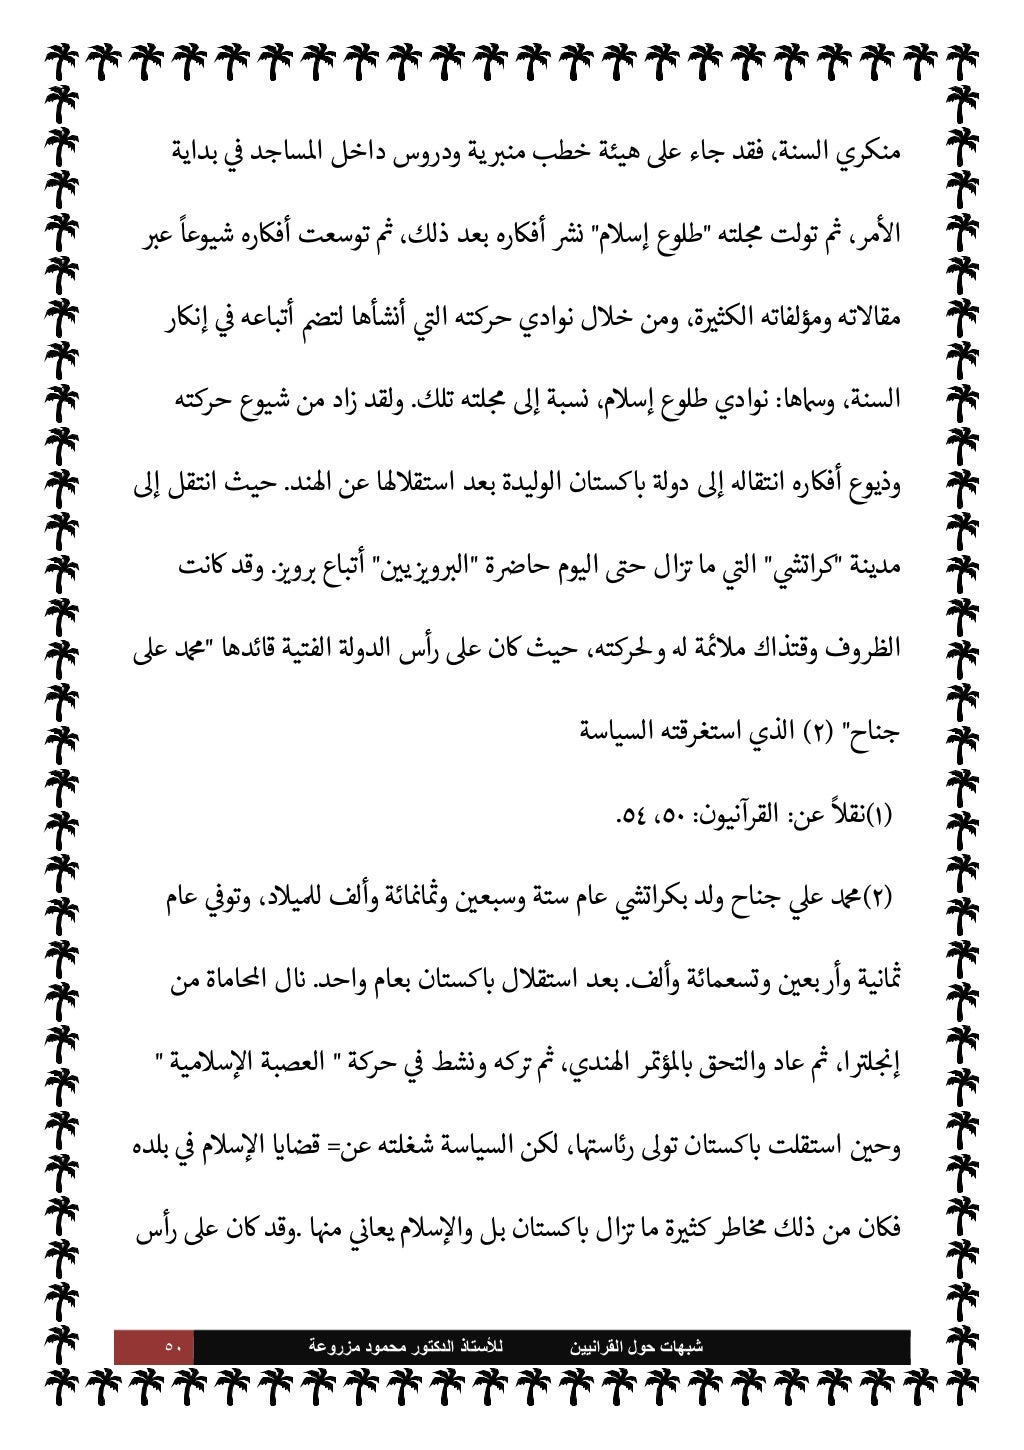 منكري السنة، فقد جاء على هيئة خطب منبرية ودروس داخل المساجد في بداية
الأمر، ثم تولت مجلته "طلوع إسلام" نشر أفكاره بعد ذلك، ثم توسعت أفكاره شيوعاً عبر
مقالاته ومؤلفاته الكثيرة، ومن خلال نوادي حركته التي أنشأها لتضم أتباعه في إنكار
السنة، وسماها: نوادي طلوع إسلام، نسبة إلى مجلته تلك. ولقد زاد من شيوع حركته
وذيوع أفكاره انتقاله إلى دولة باكستان الوليدة بعد استقلالها عن الهند. حيث انتقل إلى
مدينة "كراتشي" التي ما تزال حتى اليوم حاضرة "البرويزيين" أتباع برويز. وقد كانت
الظروف وقتذاك ملائمة له ولحركته، حيث كان على رأس الدولة الفتية قائدها "محمد على
جناح" (٢) الذي استغرقته السياسة
(١)نقلاً عن: القرآنيون: ٥٠، ٥٤.
(٢)محمد علي جناح ولد بكراتشي عام ستة وسبعين وثمانمائة وألف للميلاد، وتوفي عام
ثمانية وأربعين وتسعمائة وألف. بعد استقلال باكستان بعام واحد. نال المحاماة من
إنجلترا، ثم عاد والتحق بالمؤتمر الهندي، ثم تركه ونشط في حركة " العصبة الإسلامية "
وحين استقلت باكستان تولى رئاستها، لكن السياسة شغلته عن= قضايا الإسلام في بلده
فكان من ذلك مخاطر كثيرة ما تزال باكستان بل والإسلام يعاني منها .وقد كان على رأس
شبهات حول القرانيين للأستاذ الدكتور محمود مزروعة ٥٠